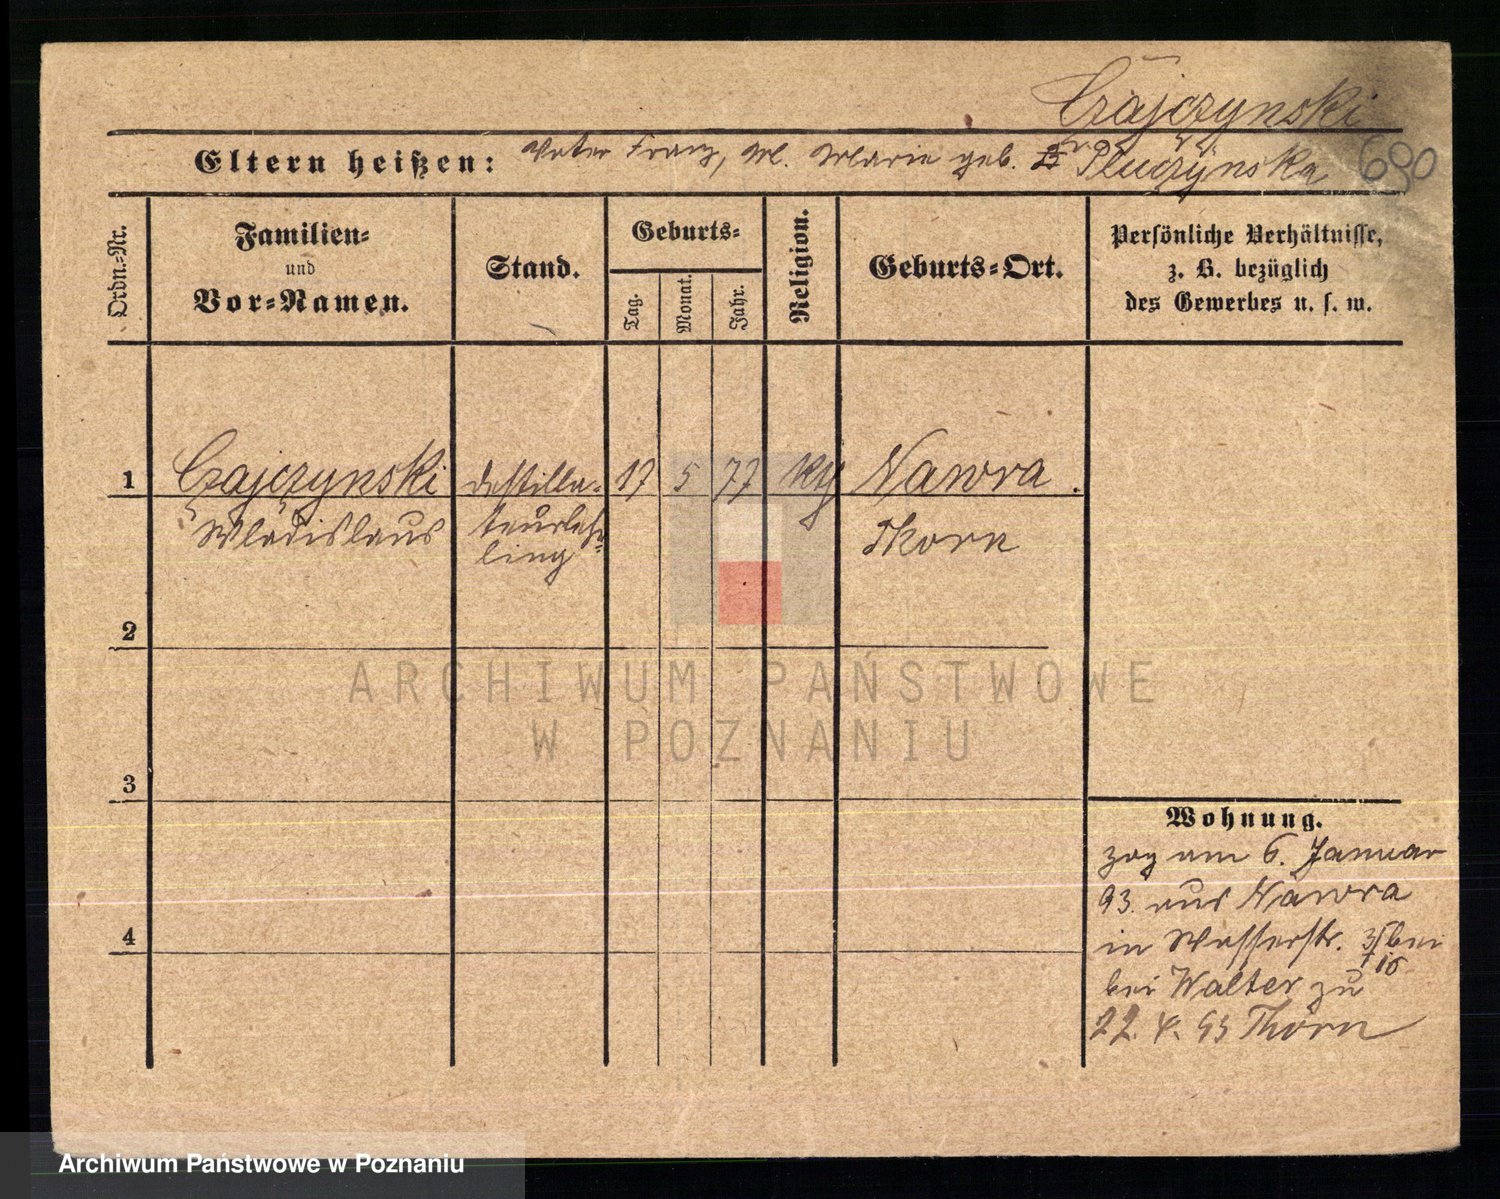 Czajczynski
Eltern heißen: Vater Franz, M. Marie geb. Pluczynska 690
Ordn.-Nr.
Familien-
und
Vor-Namen.
Stand.
Geburts-
Tag.
Monat.
Jahr.
Religion.
Geburts-Ort.
Persönliche Verhältnisse,
z. B. bezüglich
des Gewerbes u. s. w.
1 Czajczynski Destilla- 17 5 77 kth Nawra
Wladislaus teurlehr- Thorn
ling
2
3
4
Wohnung.
zog am 6. Januar
93. aus Nawra
in Wasserstr. bei
bei Walter zu
22. 4. 93 Thorn
ARCHIWUM PAŃSTWOWE
W POZNANIU
Archiwum Państwowe w Poznaniu